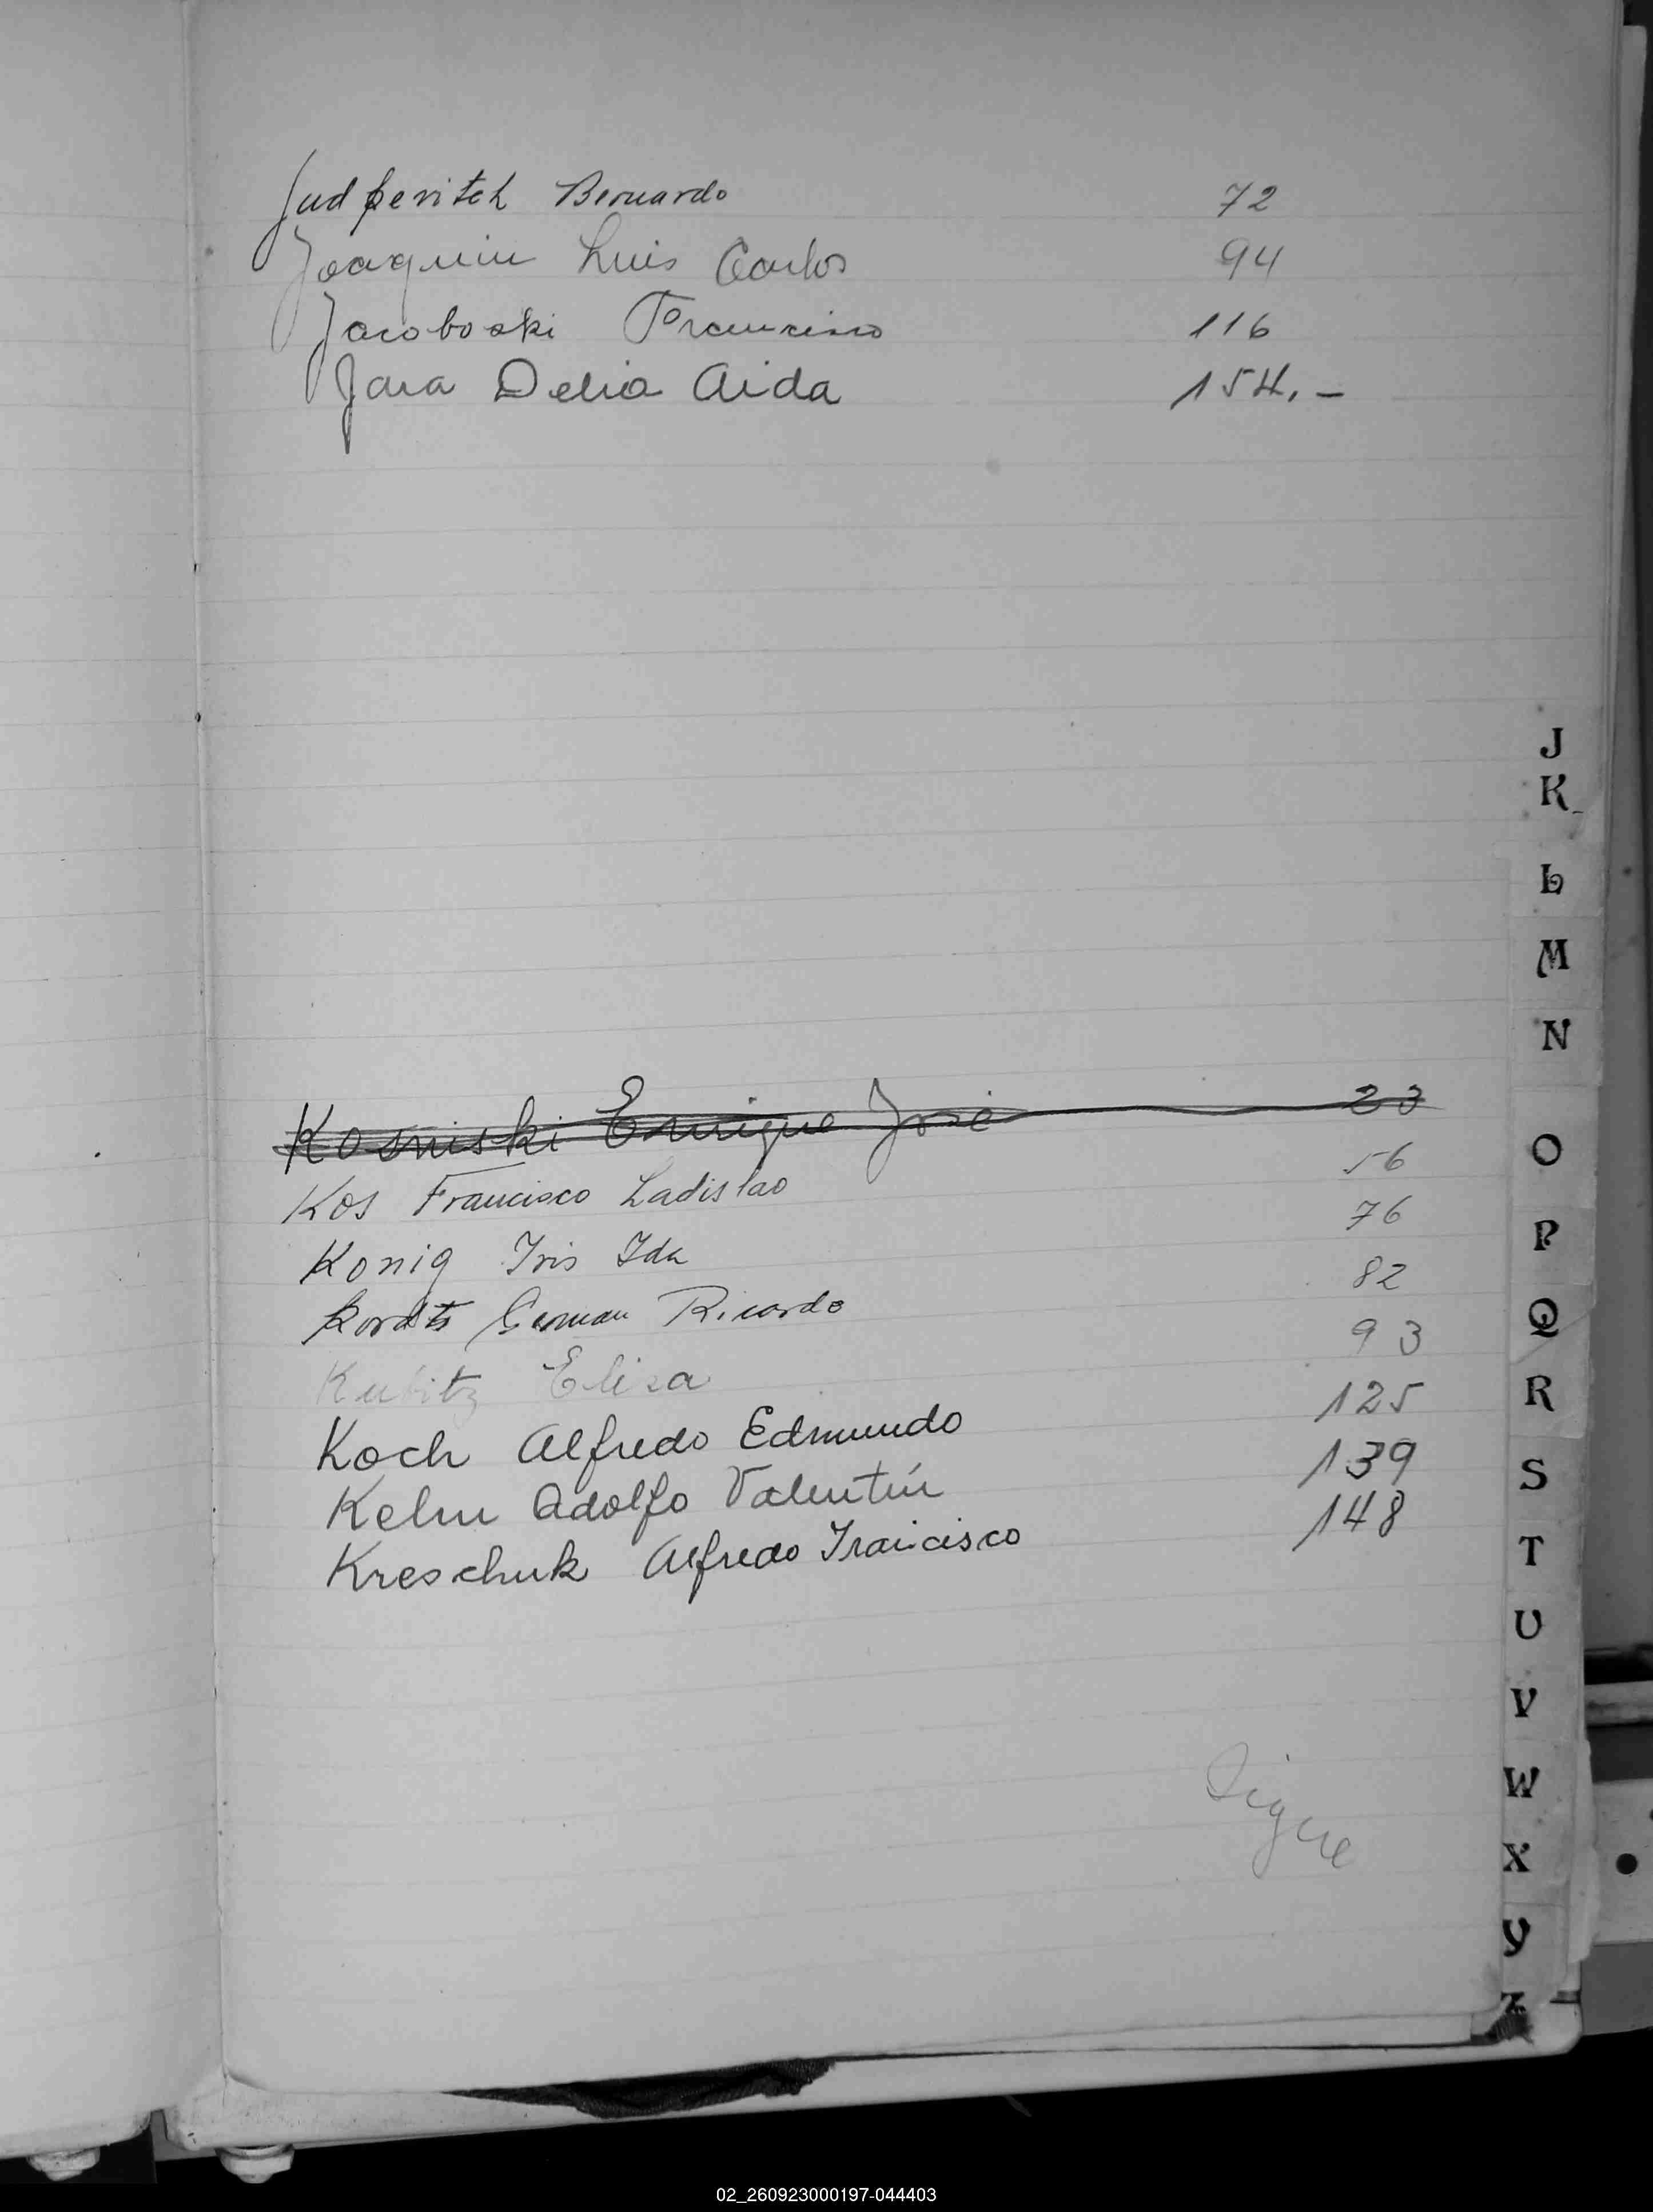 Judkevitch Bernardo 72
Joaquin Luis Carlos 94
Jacoboski Francisco 116
Jara Delia Aida 154.-
Kosniski Enrique José 23
Kos Francisco Ladislao 56
Konig Iris Ida 76
Kordts German Ricardo 82
Kubitz Elisa 93
Koch Alfredo Edmundo 125
Kelm Adolfo Valentín 139
Kreschuk Alfredo Francisco 148
Sigue
J
K
L
M
N
O
P
Q
R
S
T
U
V
W
X
Y
Z
02_260923000197-044403